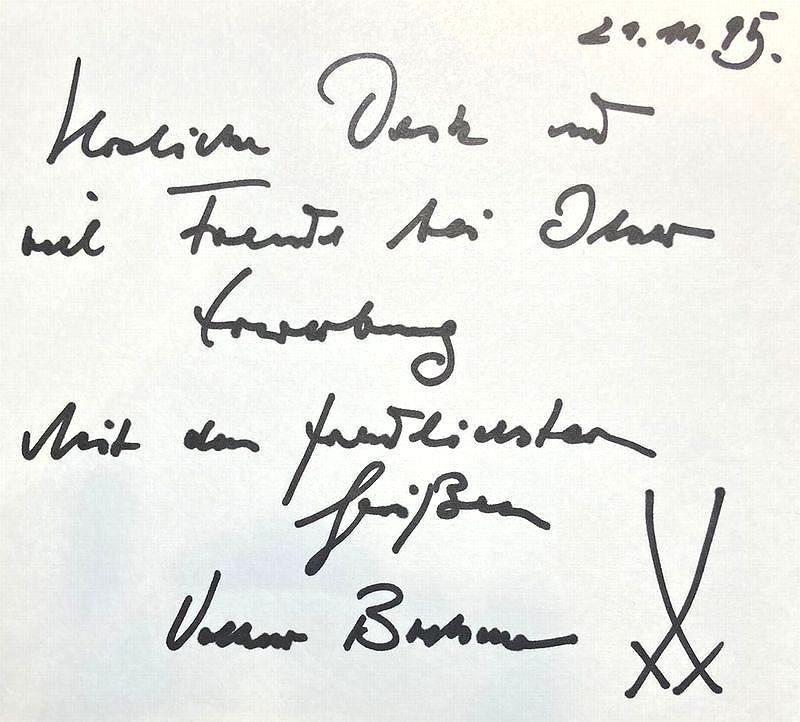 21.11.95.
Herzlichen Dank und
viel Freude bei Ihrer
Erwerbung
Mit den freundlichsten
Grüßen
Volkmar